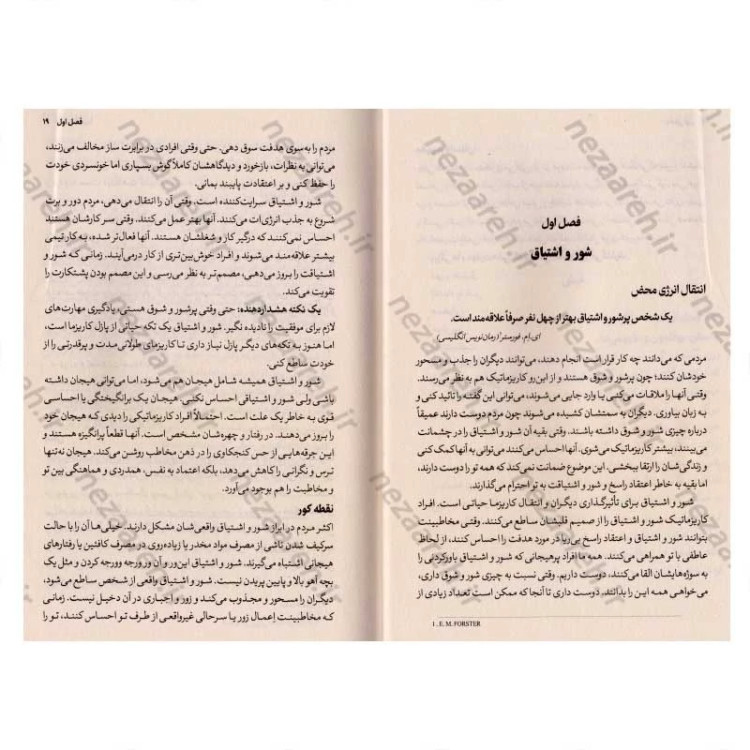 فصل اول
شور و اشتیاق
انتقال انرژی محض
یک شخص پرشور و اشتیاق بهتر از چهل نفر صرفاً علاقه‌مند است.
ای.ام. فورستر۱ (رمان‌نویس انگلیسی)
مردمی که می‌دانند چه کار قرار است انجام دهند، می‌توانند دیگران را جذب و مسحور
خودشان کنند؛ چون پرشور و شوق هستند و از این رو کاریزماتیک هم به نظر می‌رسند.
وقتی آنها را ملاقات می‌کنی یا وارد جایی می‌شوند، می‌توانی این گفته را تائید کنی و
به زبان بیاوری. دیگران به سمتشان کشیده می‌شوند چون مردم دوست دارند عمیقاً
درباره چیزی شور و شوق داشته باشند. وقتی بقیه آن شور و اشتیاق را در چشمانت
می‌بینند، بیشتر کاریزماتیک می‌شوی. آنها احساس می‌کنند می‌توانی به آنها کمک کنی
و زندگی‌شان را ارتقا ببخشی. این موضوع ضمانت نمی‌کند که همه تو را دوست دارند،
اما بقیه به خاطر اعتقاد راسخ و شور و اشتیاقت به تو احترام می‌گذارند.
شور و اشتیاق برای تأثیرگذاری دیگران و انتقال کاریزما حیاتی است. افراد
کاریزماتیک شور و اشتیاق را از صمیم قلبشان ساطع می‌کنند. وقتی مخاطبینت
بتوانند شور و اشتیاق و اعتقاد راسخ بی‌ریا در مورد هدفت را احساس کنند، از لحاظ
عاطفی با تو همراهی می‌کنند. همه ما افراد پرهیجانی که شور و اشتیاق باورکردنی را
به سوژه‌هایشان القا می‌کنند، دوست داریم. وقتی نسبت به چیزی شور و شوق داری،
می‌خواهی همه این را بدانند. دوست داری تا آنجا که ممکن است تعداد زیادی از
1 . E. M. FORSTER
فصل اول ۱۹
مردم را به‌سوی هدفت سوق دهی. حتی وقتی افرادی در برابرت ساز مخالف می‌زنند،
می‌توانی به نظرات، بازخورد و دیدگاهشان کاملاً گوش بسپاری اما خونسردی خودت
را حفظ کنی و بر اعتقادت پایبند بمانی.
شور و اشتیاق سرایت‌کننده است. وقتی آن را انتقال می‌دهی، مردم دور و برت
شروع به جذب انرژی‌ات می‌کنند. آنها بهتر عمل می‌کنند. وقتی سر کارشان هستند
احساس نمی‌کنند که درگیر کاز و شغلشان هستند. آنها فعال‌تر شده، به کار تیمی
بیشتر علاقه‌مند می‌شوند و افراد خوش‌بین‌تری از کار درمی‌آیند. زمانی که شور و
اشتیاقت را بروز می‌دهی، مصمم‌تر به نظر می‌رسی و این مصمم بودن پشتکارت را
تقویت می‌کند.
یک نکته هشداردهنده: حتی وقتی پرشور و شوق هستی، یادگیری مهارت‌های
لازم برای موفقیت را نادیده نگیر. شور و اشتیاق یک تکه حیاتی از پازل کاریزما است،
اما هنوز به تکه‌های دیگر پازل نیاز داری تا کاریزمای طولانی‌مدت و پرقدرتی را از
خودت ساطع کنی.
شور و اشتیاق همیشه شامل هیجان هم می‌شود، اما می‌توانی هیجان داشته
باشی ولی شور و اشتیاقی احساس نکنی. هیجان یک برانگیختگی یا احساسی
قوی به خاطر یک علت است. احتمالاً افراد کاریزماتیکی را دیدی که هیجان خود
را بروز می‌دهند. در رفتار و چهره‌شان مشخص است. آنها قطعاً پرانگیزه هستند و
این جرقه‌هایی از حس کنجکاوی را در ذهن مخاطب روشن می‌کند. هیجان نه‌تنها
ترس و نگرانی را کاهش می‌دهد، بلکه اعتماد به نفس، همدردی و هماهنگی بین تو
و مخاطبت را هم بوجود می‌آورد.
نقطه کور
اکثر مردم در ابراز شور و اشتیاق واقعی‌شان مشکل دارند. خیلی‌ها آن را با حالت
سرکیف شدن ناشی از مصرف مواد مخدر یا زیاده‌روی در مصرف کافئین یا رفتارهای
هیجانی اشتباه می‌گیرند. شور و اشتیاق این‌ور و آن ور ورجه وورجه کردن و مثل یک
بچه آهو بالا و پایین پریدن نیست. شور و اشتیاق واقعی از شخص ساطع می‌شود،
دیگران را مسحور و مجذوب می‌کند و زور و اجباری در آن دخیل نیست. زمانی
که مخاطبینت اِعمال زور یا سرحالی غیرواقعی از طرف تو احساس کنند، تو را
nezaareh.ir